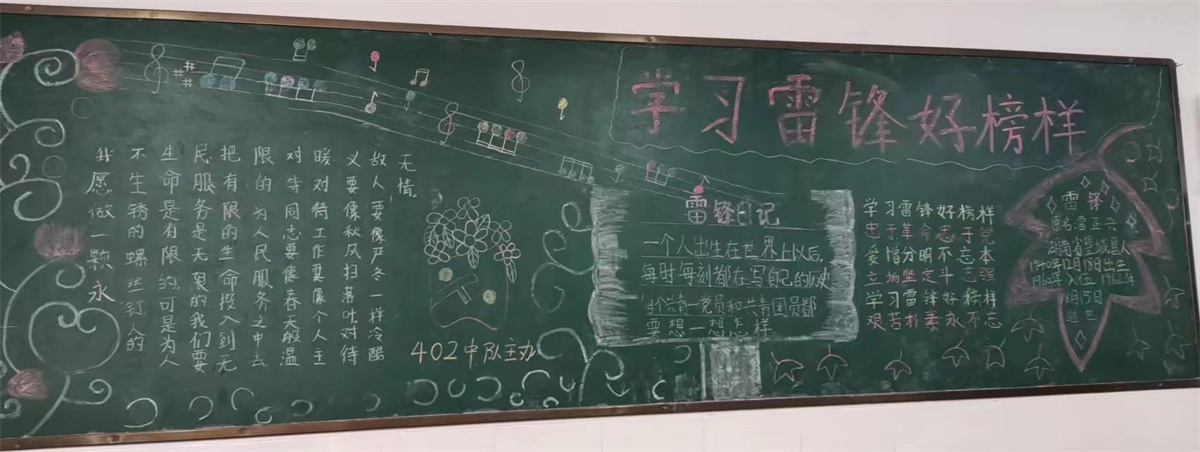 学习雷锋好榜样
我愿做一颗永
不生锈的螺丝钉人的
生命是有限的可是为人
民服务是无限的我们要
把有限的生命投入到无
限的为人民服务之中去
对待同志要像春天般温
暖对待工作要像个人主
义要像秋风扫落叶对待
敌人要像严冬一样冷酷
无情
402中队主办
雷锋日记
一个人出生在世界上以后,
每时每刻都在写自己的历史
党员和共青团员都
要想一想怎样
学习雷锋好榜样
忠于革命忠于党
爱憎分明不忘本
立场坚定斗志强
学习雷锋好榜样
艰苦朴素永不忘
雷锋
原名雷正兴
湖南省望城县人
1940年12月18日出生
8月15日